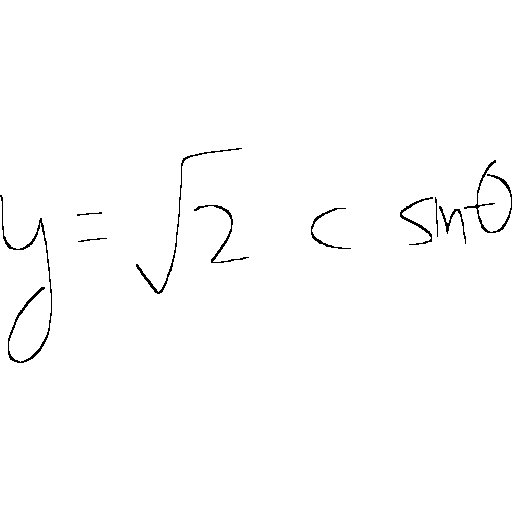 y = √2 c sinθ